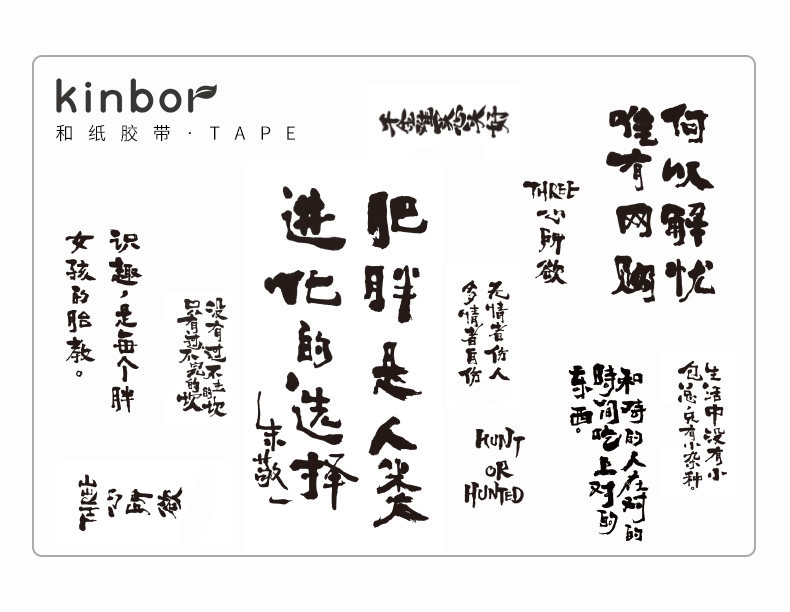 kinbor
和纸胶带·TAPE
千金难买心头好
何以解忧
唯有网购
THREE
心所欲
肥胖是人类
进化的选择
朱敬一
识趣，是每个胖
女孩的胎教。
没有过不去的坎
只有过不完的坎
无情者伤人
多情者自伤
HUNT
OR
HUNTED
和对的人在对的
時间吃上对的
东西。
生活中没有小
包总只有小杂种。
THREE